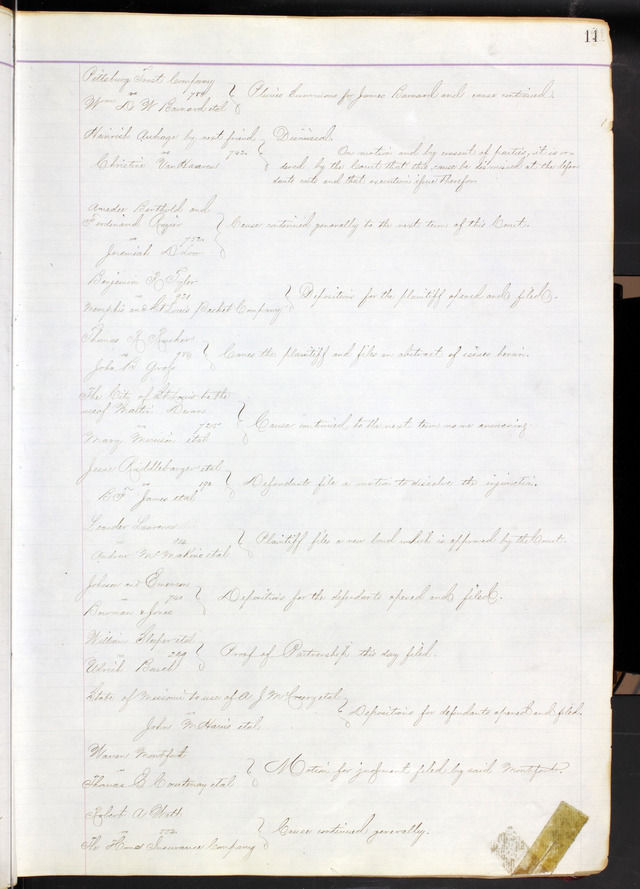 11
Pittsburg Trust Company
vs 784
Wm D W Barnard etal
Pluries Summons for James Barnard and cause continued.
Heinrich by next friend,
vs 742
Christine Van Haaren
Dismissed.
On motion and by consent of parties, it is or-
dered by the Court that this cause be dismissed at the defen
dants costs and that execution issue therefor.
Amadee Berthold and
Ferdinand Rozier
vs
Jeremiah D Low
Cause continued generally to the next term of this Court.
Benjamin F Tyler
vs
Memphis and St Louis Packet Company
Depositions for the plaintiff opened and filed.
Thomas R
vs
John B Gross
Comes the plaintiff and files an abstract of issues herein.
The City of St Louis to the
use of Martin
vs
Mary etal
Cause continued to the next term no one answering.
Jesse Riddlebarger etal
vs 190
B F James etal
Defendants file a motion to dissolve the injunction.
Leander
vs
Andrew etal
Plaintiff files a new bond which is approved by the Court.
Johnson and Emerson
vs 740
Bowman & Jones
Depositions for the defendants opened and filed.
William Sleeper etal
vs 299
Ulrich Busch
Proof of Partnership this day filed.
State of Missouri to use of A J McCreery etal
vs
John etal
Depositions for defendants opened and filed.
Warren Montfort
vs
Thomas E Courtenay etal
Motion for judgment filed by said Montfort.
Robert A
vs 772
The Home Insurance Company
Cause continued generally.